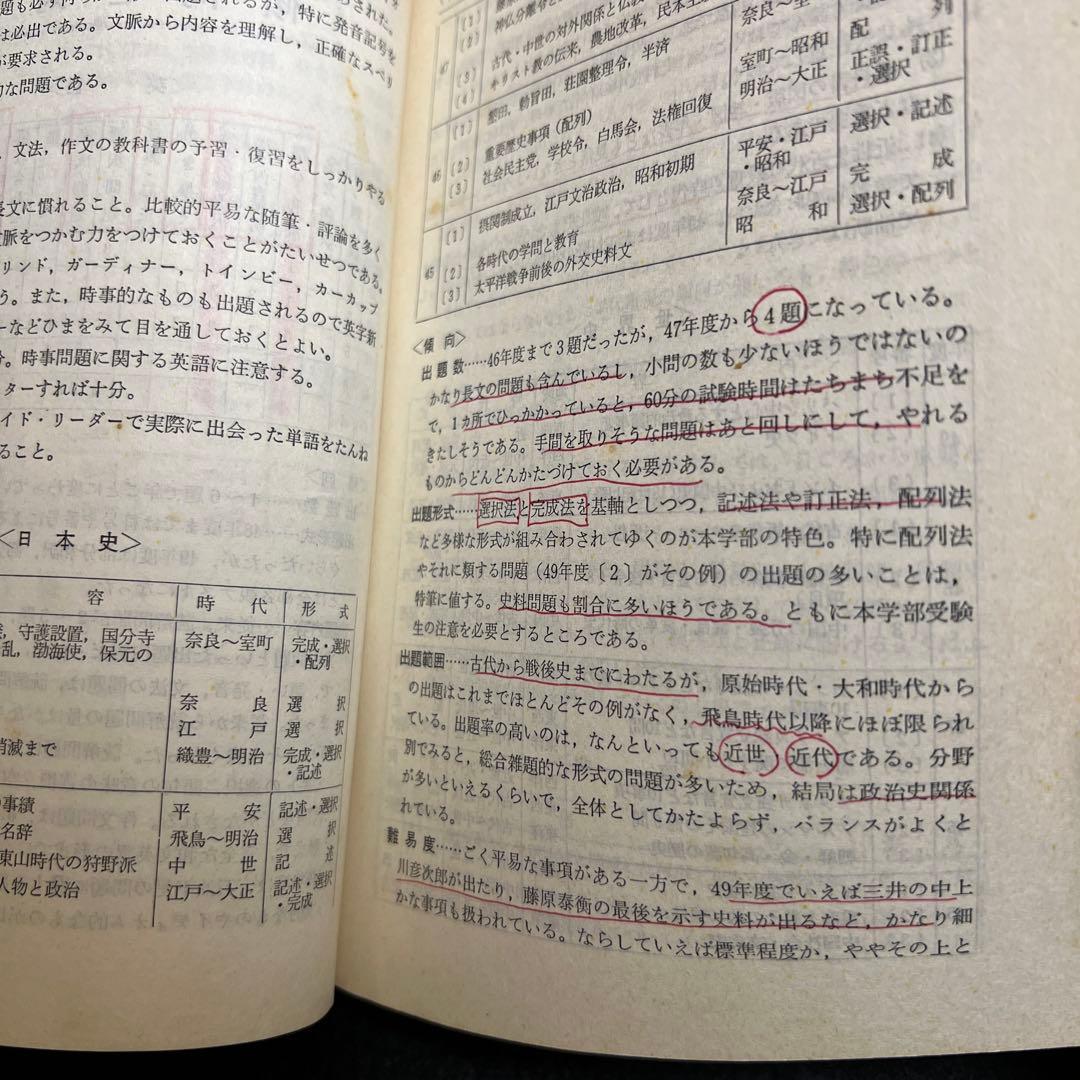 題も必ず
は必出である。文脈から内容を理解し，正確なスペリ
が要求される。
な問題である。
文法，作文の教科書の予習・復習をしっかりやる
長文に慣れること。比較的平易な随筆・評論を多く
脈をつかむ力をつけておくことがたいせつである。
リンド，ガーディナー，トインビー，カーカップ
う。また，時事的なものも出題されるので英字新
ーなどひまをみて目を通しておくとよい。
分。時事問題に関する英語に注意する。
ターすれば十分。
イド・リーダーで実際に出会った単語をたんね
ること。
＜日本史＞
容 時代 形式
守護設置，国分寺 奈良～室町 完成・選択
乱，渤海使，保元の ・配列
奈良 選択
江戸 選択
消滅まで 織豊～明治 完成・選択
・記述
の事績 平安 記述・選択
名辞 飛鳥～明治 選択
東山時代の狩野派 中世 記述
人物と政治 江戸～大正 記述・選択
・完成
47
(2) 神仏分離令と
(3) 古代・中世の対外関係と仏
(4) キリスト教の伝来，農地改革，民本主
奈良～室
室町～昭和 配列
明治～大正 正誤・訂正
・選択
46 (1) 墾田，勅旨田，荘園整理令，半済
(2) 重要歴史事項（配列）
(3) 社会民主党，学校令，白馬会，法権回復
平安・江戸 選択・記述
・昭和
45 (1) 摂関制成立，江戸文治政治，昭和初期
(2) 各時代の学問と教育
(3) 太平洋戦争前後の外交史料文
奈良～江戸 完成
昭和 選択・配列
＜傾向＞
出題数……46年度まで3題だったが，47年度から4題になっている。
かなり長文の問題も含んでいるし，小問の数も少ないほうではないの
で，1カ所でひっかかっていると，60分の試験時間はたちまち不足を
きたしそうである。手間を取りそうな問題はあと回しにして，やれる
ものからどんどんかたづけておく必要がある。
出題形式……選択法と完成法を基軸としつつ，記述法や訂正法，配列法
など多様な形式が組み合わされてゆくのが本学部の特色。特に配列法
やそれに類する問題（49年度〔2〕がその例）の出題の多いことは，
特筆に値する。史料問題も割合に多いほうである。ともに本学部受験
生の注意を必要とするところである。
出題範囲……古代から戦後史までにわたるが，原始時代・大和時代から
の出題はこれまでほとんどその例がなく，飛鳥時代以降にほぼ限られ
ている。出題率の高いのは，なんといっても近世　近代である。分野
別でみると，総合雑題的な形式の問題が多いため，結局は政治史関係
が多いといえるくらいで，全体としてかたよらず，バランスがよくと
れている。
難易度……ごく平易な事項がある一方で，49年度でいえば三井の中上
川彦次郎が出たり，藤原泰衡の最後を示す史料が出るなど，かなり細
かな事項も扱われている。ならしていえば標準程度か，ややその上と